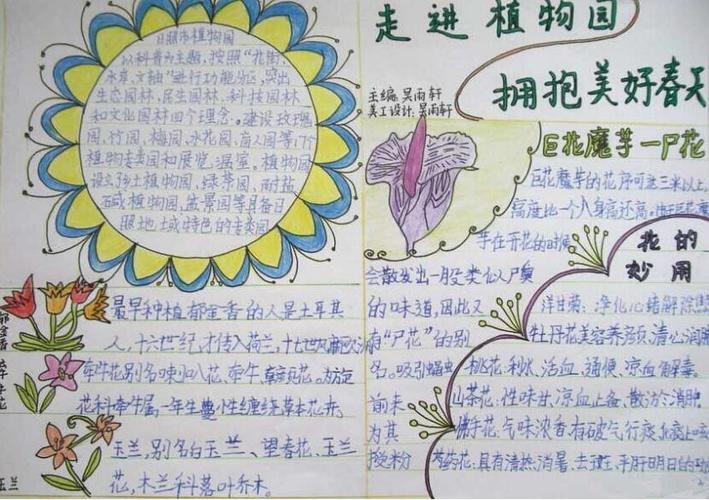 走进植物园
拥抱美好春天
主编:吴雨轩
美工设计:吴雨轩
日照市植物园
以科普为主题,按照“花街、
水岸、文轴”进行功能分区,突出
生态园林、民生园林、科技园林
和文化园林四个理念。建设玫瑰
园、竹园、梅园、水花园、盲人园等17个
植物专类园和展览温室。植物园
设立乡土植物园、绿茶园、耐盐
碱植物园、盆景园等具备日
照地域特色的专类园
最早种植郁金香的人是土耳其
人,十六世纪,才传入荷兰,十七世
牵牛花别名喇叭花、牵牛、
花科牵牛属一年生蔓性缠绕草本花卉。
玉兰,别名白玉兰、望春花、玉兰
花,木兰科落叶乔木。
玉兰
巨花魔芋—尸花
巨花魔芋的花序可达三米以上,
高度比一个人身高还高。由于巨花魔
芋在开花的时候
会散发出一股类似尸臭
的味道,因此又
有“尸花”的别
名。吸引
前来
为其
授粉
花的
妙用
洋甘菊:净化心绪解除
牡丹花美容养颜,清心润肺
桃花:利水、活血、通便、凉血解毒。
山茶花:性味甘、凉血止血、散瘀消肿
佛手花:气味浓香.有破气行痰
芍药花:具有清热、消暑、去斑、平肝明目的功